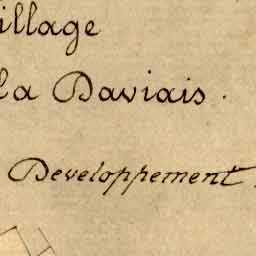 illage
la Daviais.
Developpement.